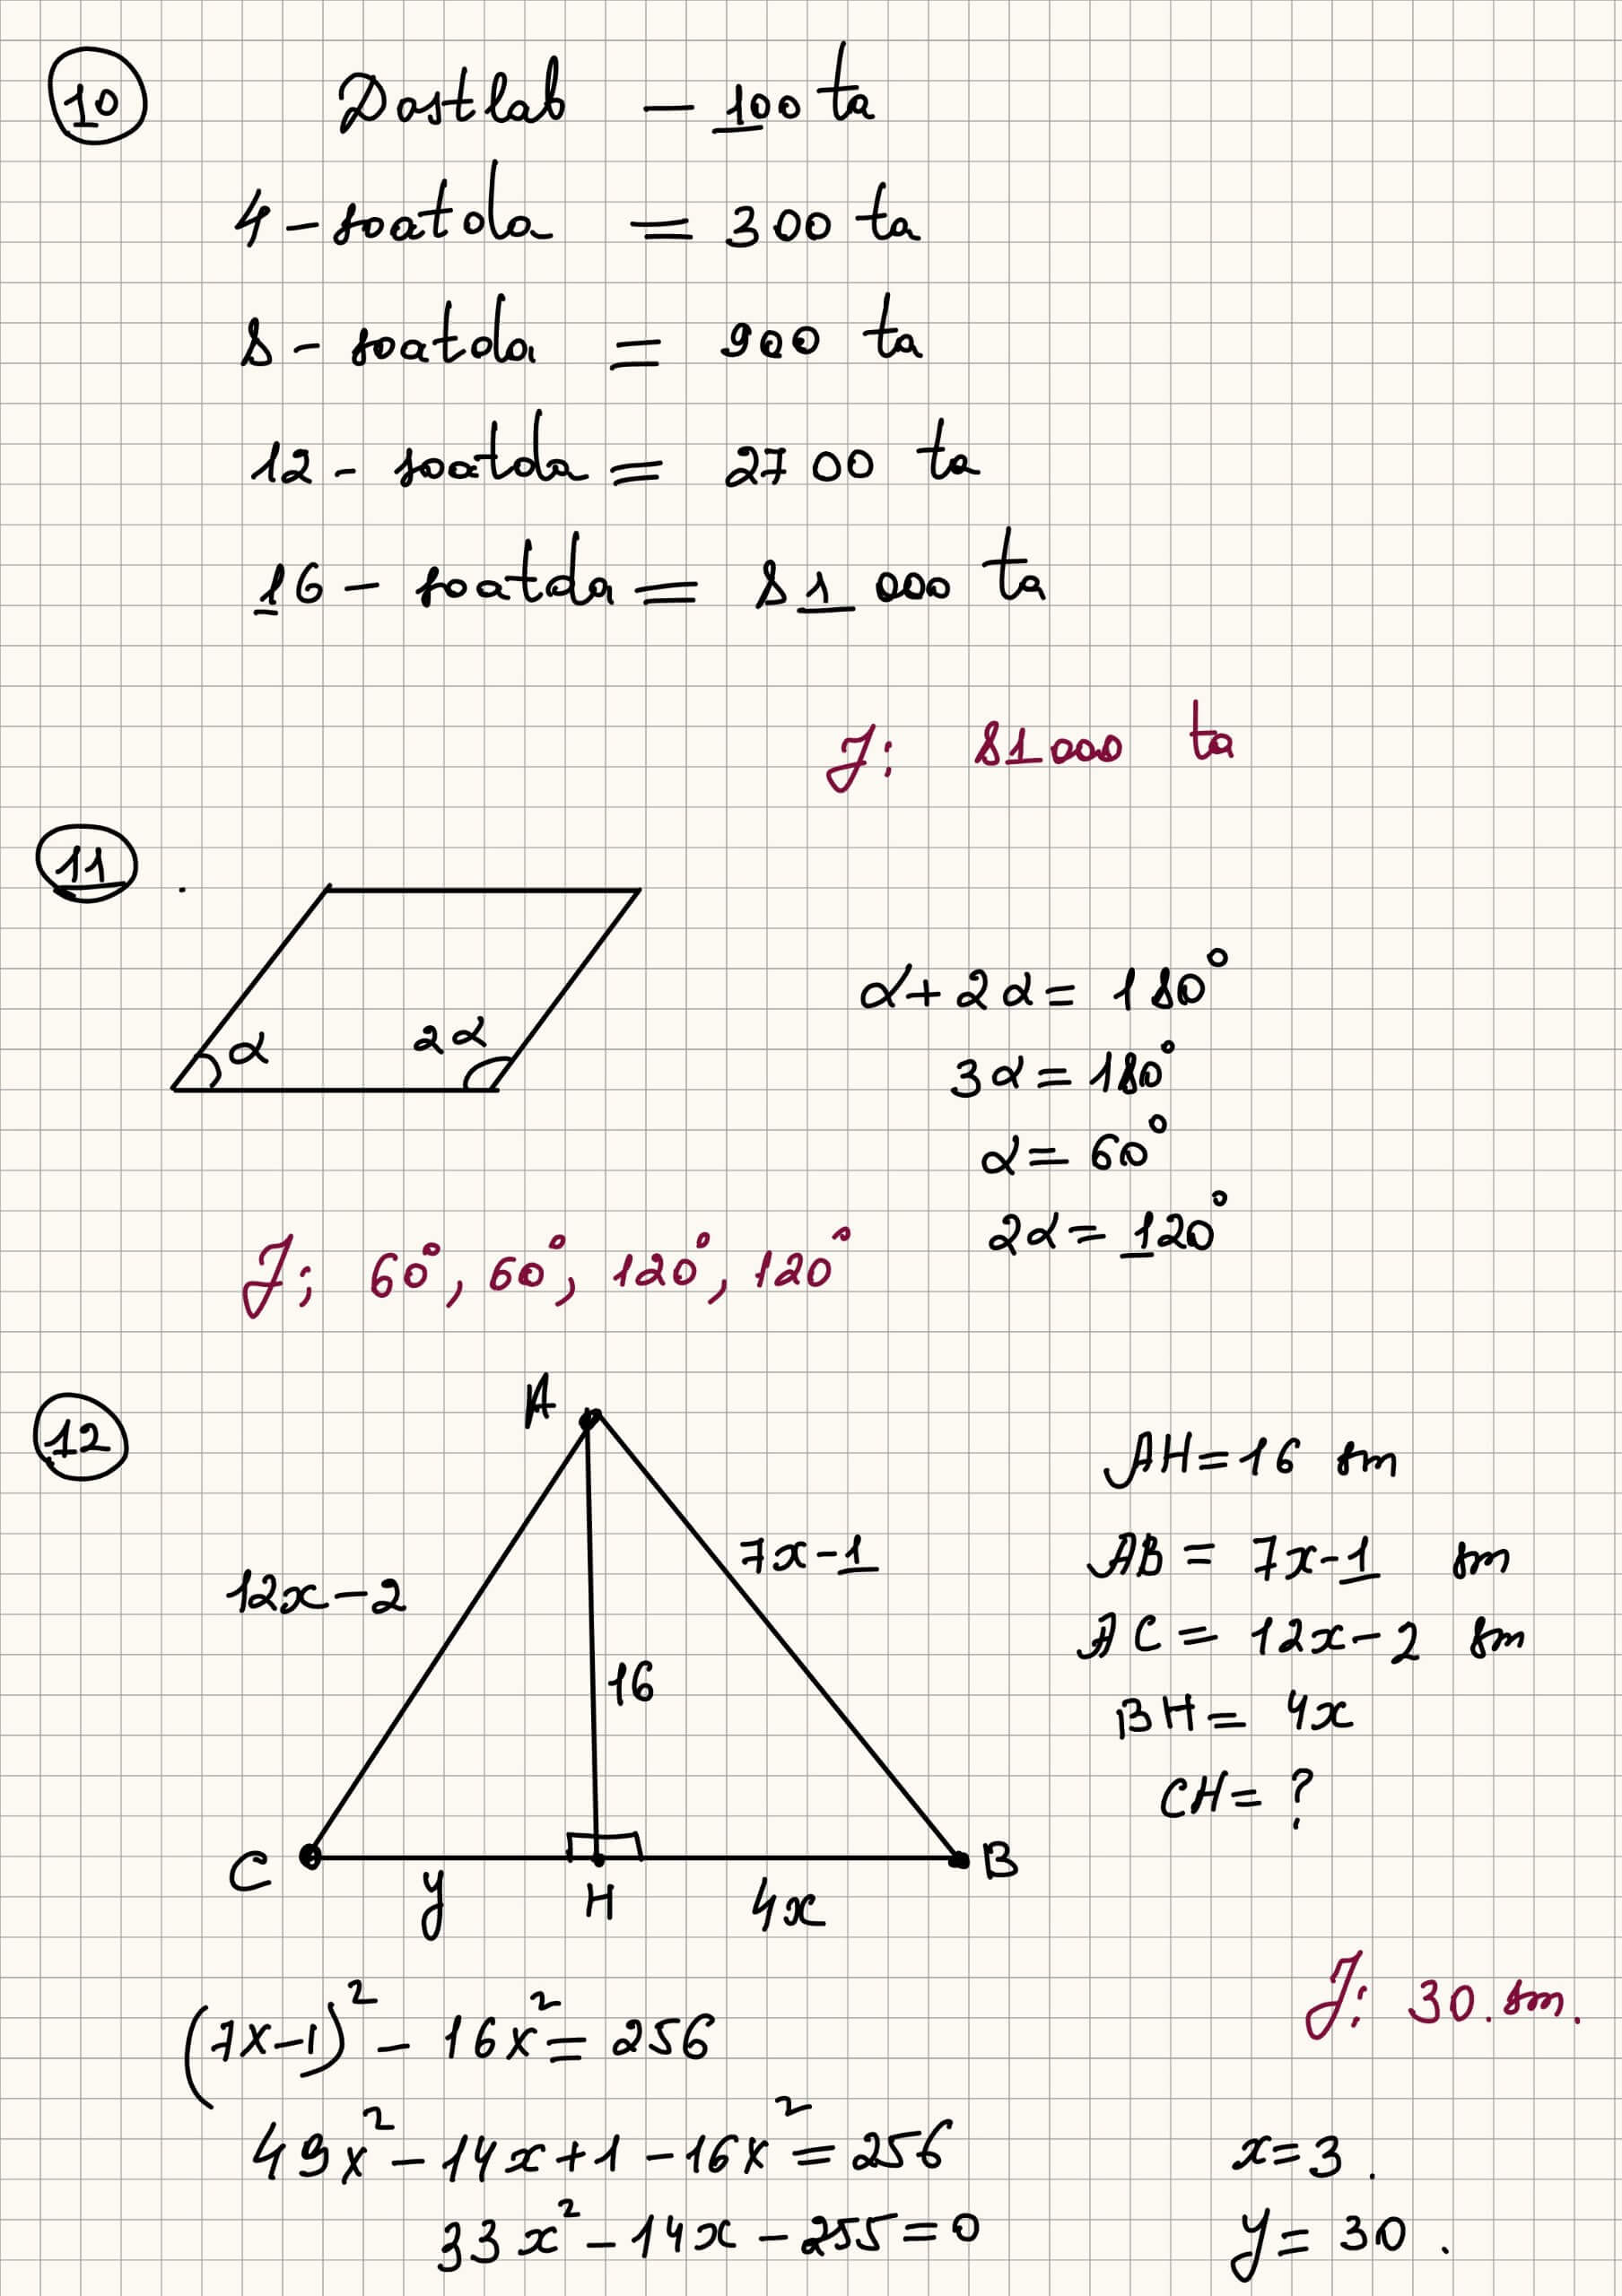 10 Dastlab - 100 ta
4 - soatda = 300 ta
8 - soatda = 900 ta
12 - soatda = 2700 ta
16 - soatda = 81 000 ta
J: 81000 ta
11
α 2α
α + 2α = 180°
3α = 180°
α = 60°
2α = 120°
J: 60°, 60°, 120°, 120°
12
A
12x - 2
7x - 1
16
C y H 4x B
AH = 16 sm
AB = 7x - 1 sm
AC = 12x - 2 sm
BH = 4x
CH = ?
J: 30. sm.
(7x - 1)² - 16x² = 256
49x² - 14x + 1 - 16x² = 256
33x² - 14x - 255 = 0
x = 3.
y = 30.